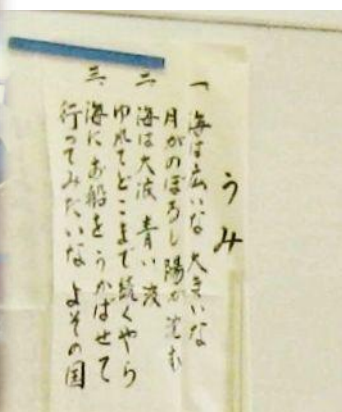 うみ
一、海は広いな 大きいな
月がのぼるし 陽が沈む
二、海は大波 青い波
ゆれてどこまで続くやら
三、海にお船をうかばせて
行ってみたいな よその国